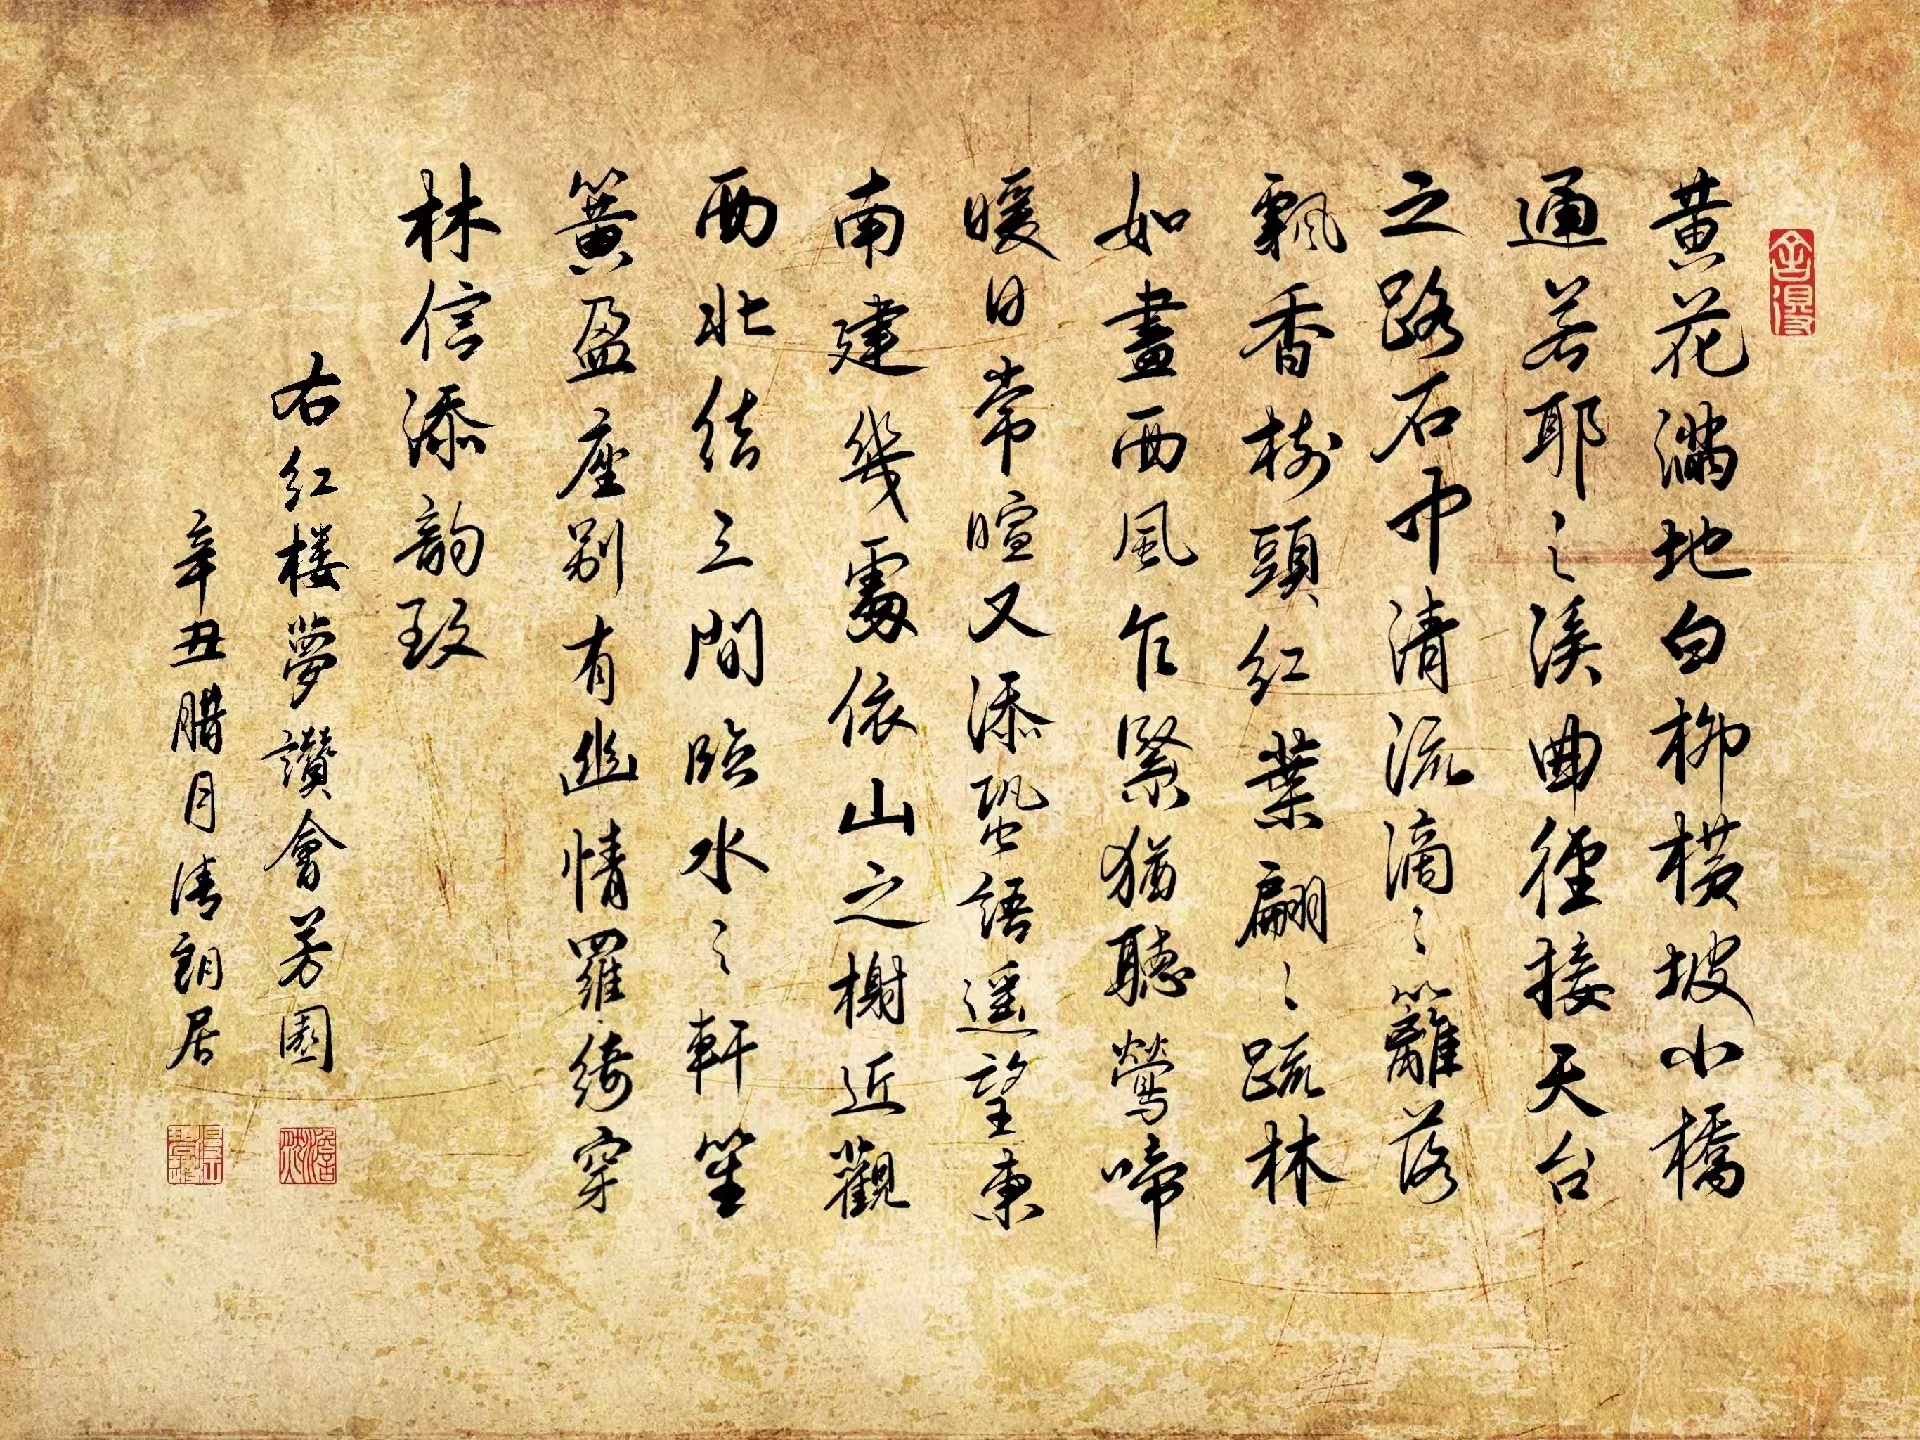 黄花满地白柳横坡小橋
通若耶之溪曲徑接天台
之路石中清流滴滴籬落
飄香樹頭紅葉翩翩疏林
如畫西風乍緊猶聽鶯啼
暖日常暄又添蛩語遥望東
南建幾處依山之榭近觀
西北結三間臨水之軒笙
簧盈座别有幽情羅綺穿
林信添韵致
右红楼夢讚會芳園
辛丑腊月清朗居